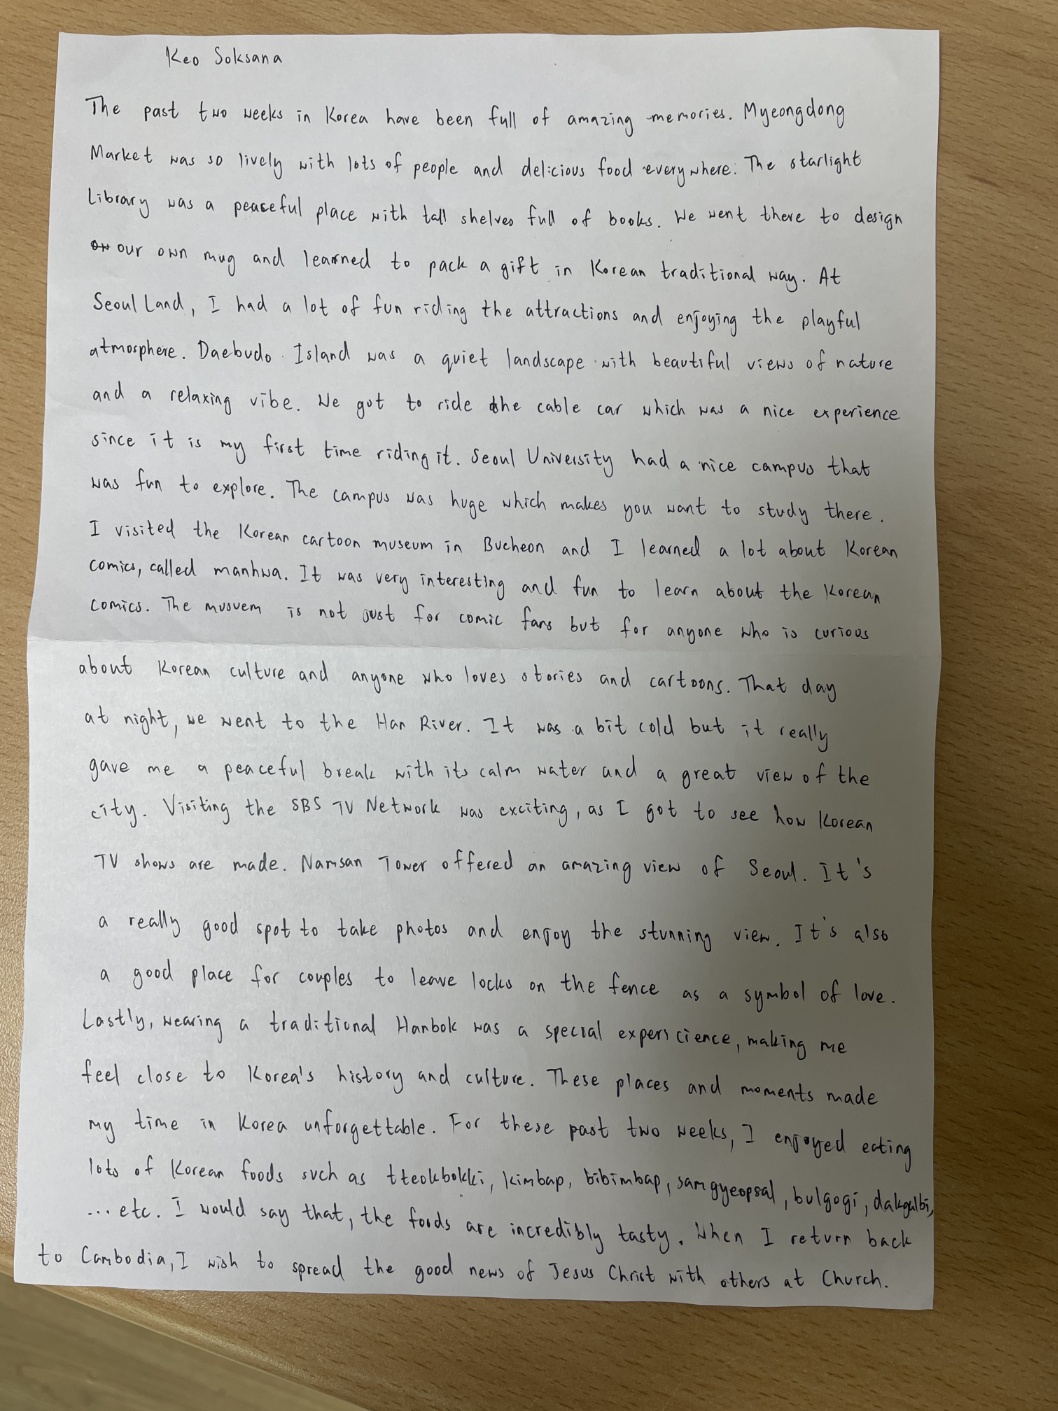 Keo Soksana
The past two weeks in Korea have been full of amazing memories. Myeongdong
Market was so lively with lots of people and delicious food everywhere. The starlight
Library was a peaceful place with tall shelves full of books. We went there to design
our own mug and learned to pack a gift in Korean traditional way. At
Seoul Land, I had a lot of fun riding the attractions and enjoying the playful
atmosphere. Daebudo Island was a quiet landscape with beautiful views of nature
and a relaxing vibe. We got to ride the cable car which was a nice experience
since it is my first time riding it. Seoul University had a nice campus that
was fun to explore. The campus was huge which makes you want to study there.
I visited the Korean cartoon museum in Bucheon and I learned a lot about Korean
comics, called manhwa. It was very interesting and fun to learn about the Korean
comics. The museum is not just for comic fans but for anyone who is curious
about Korean culture and anyone who loves stories and cartoons. That day
at night, we went to the Han River. It was a bit cold but it really
gave me a peaceful break with its calm water and a great view of the
city. Visiting the SBS TV Network was exciting, as I got to see how Korean
TV shows are made. Namsan Tower offered an amazing view of Seoul. It's
a really good spot to take photos and enjoy the stunning view. It's also
a good place for couples to leave locks on the fence as a symbol of love.
Lastly, wearing a traditional Hanbok was a special expericience, making me
feel close to Korea's history and culture. These places and moments made
my time in Korea unforgettable. For these past two weeks, I enjoyed eating
lots of Korean foods such as tteokbokki, kimbap, bibimbap, samgyeopsal, bulgogi, dakgalbi,
... etc. I would say that, the foods are incredibly tasty. When I return back
to Cambodia, I wish to spread the good news of Jesus Christ with others at Church.